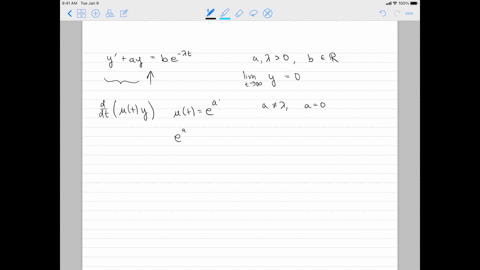 9:41 AM Tue Jan 9
100%
y' + ay = be^{-λt}
a, λ > 0, b ∈ ℝ
lim_{t→∞} y = 0
d/dt (μ(t) y) μ(t) = e^{a'}
a ≠ λ, a = 0
e^{a}